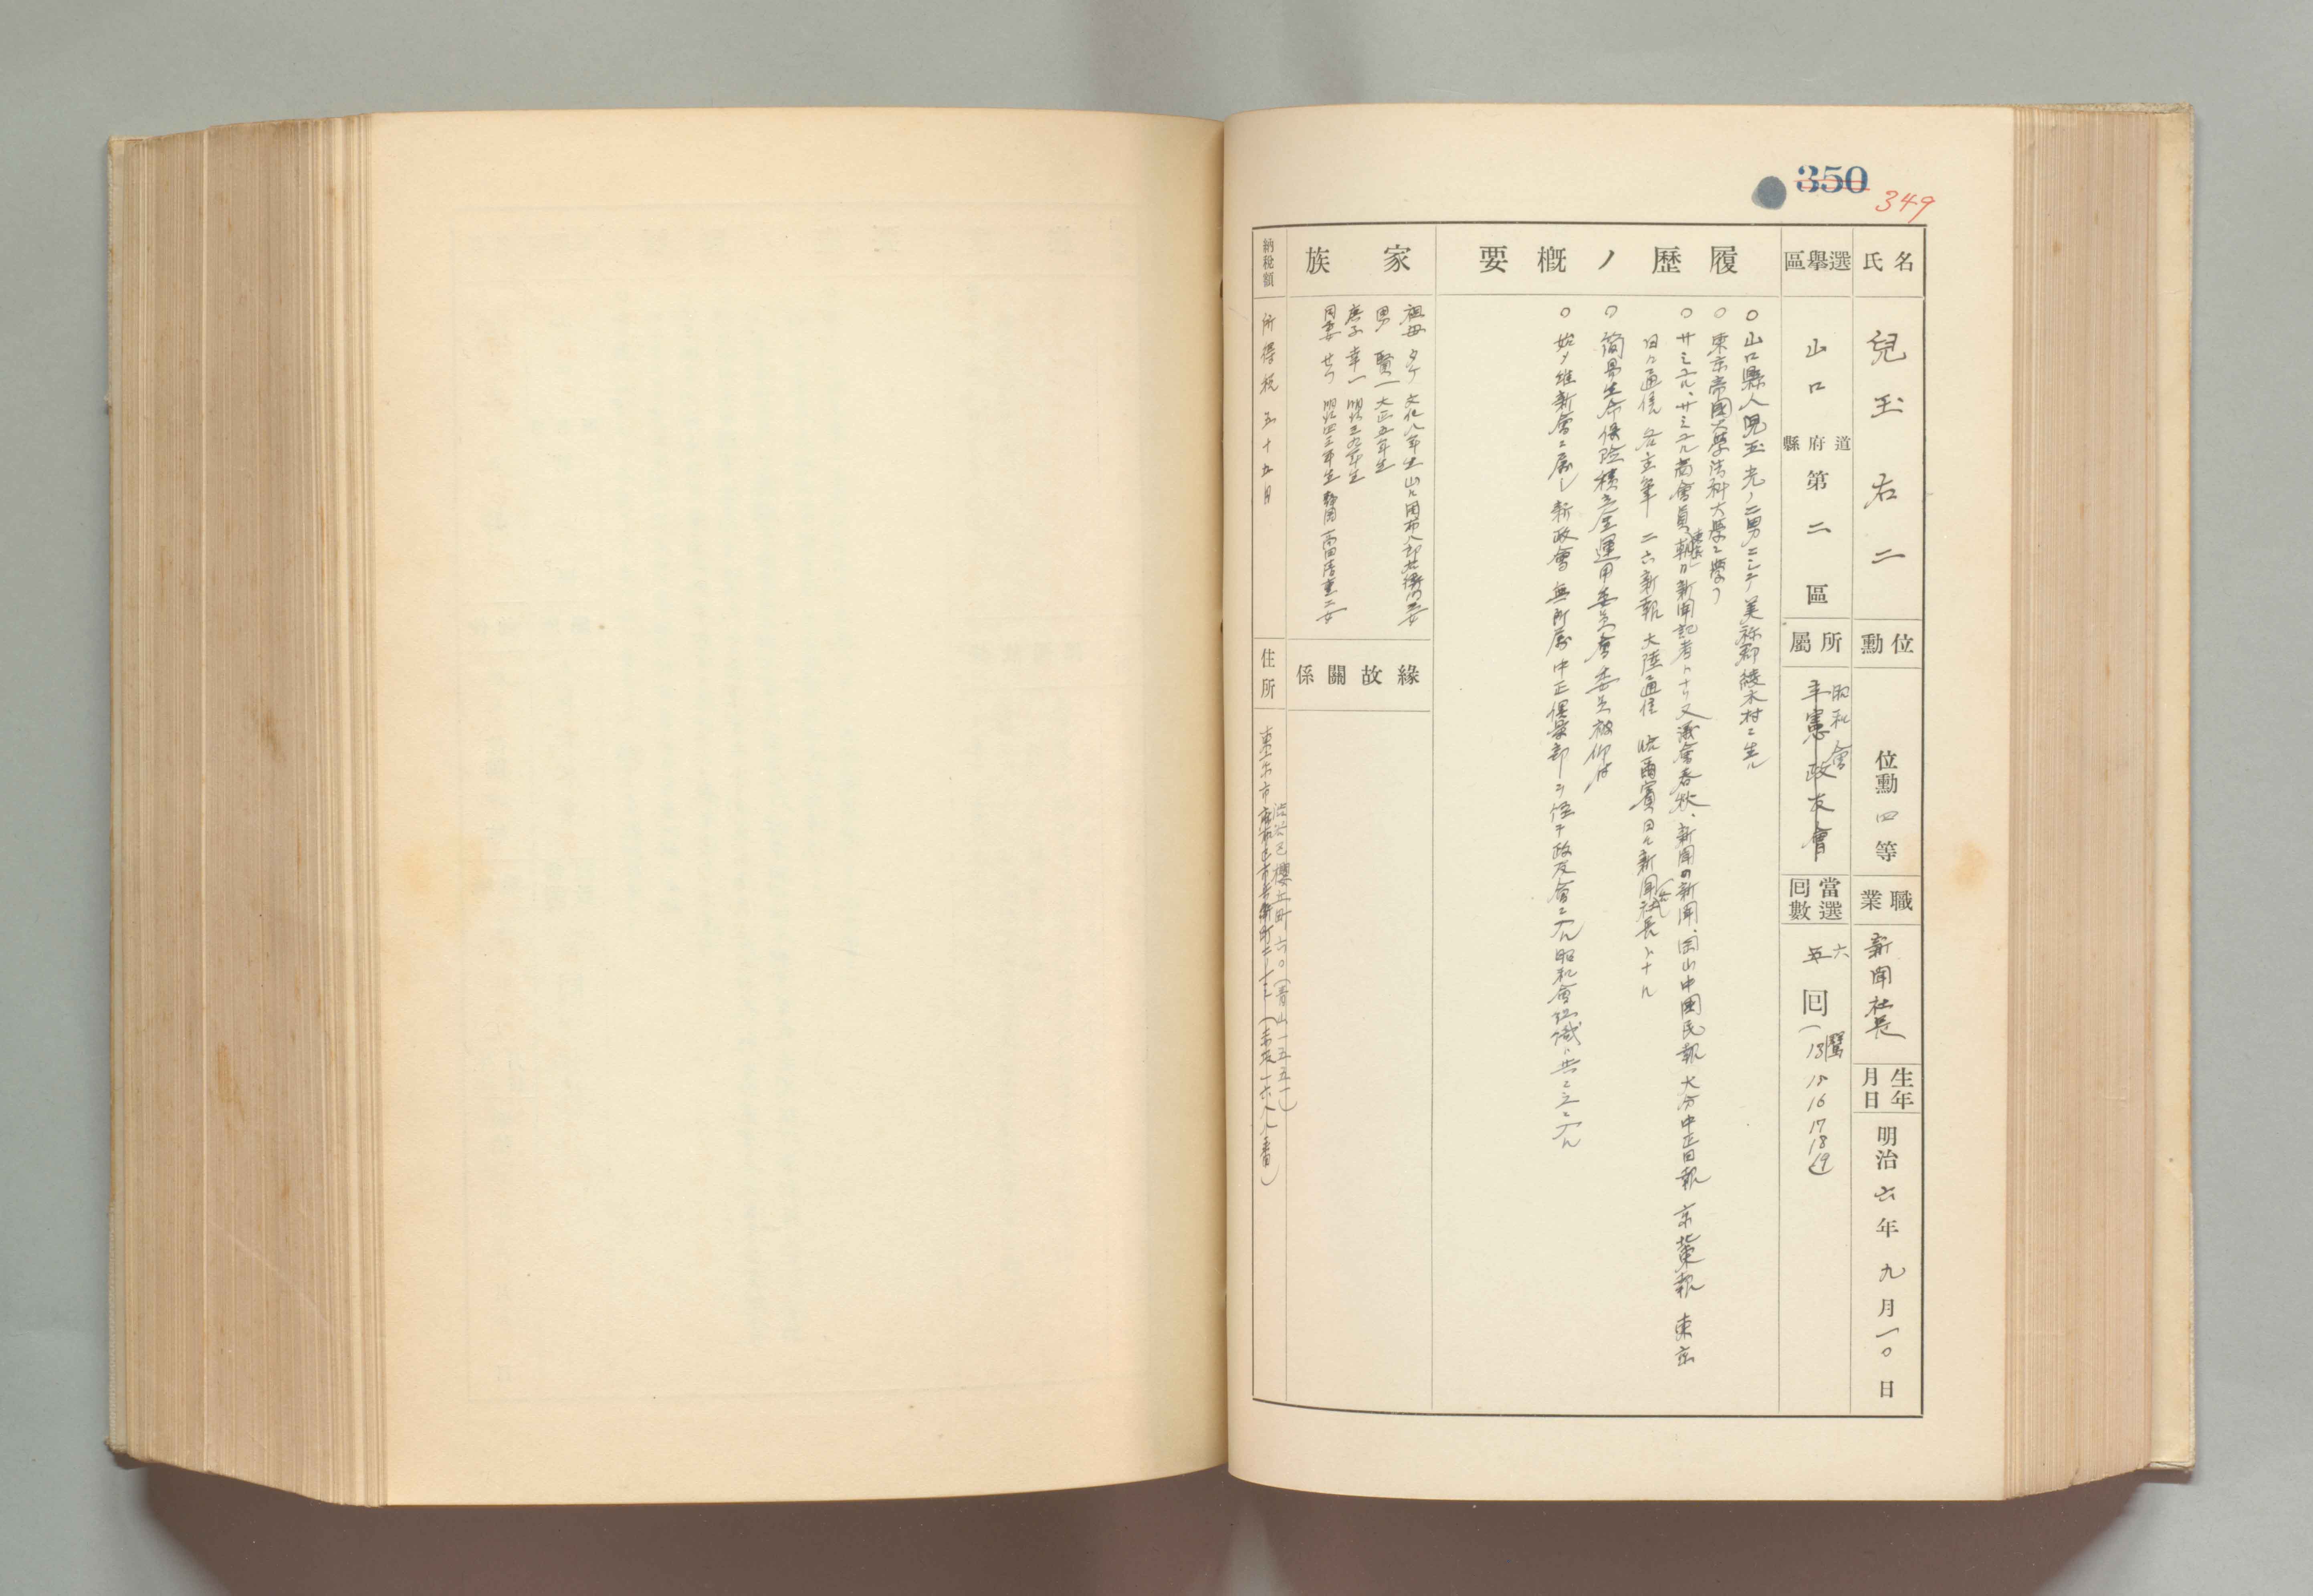 350
349
氏名
兒玉右二
位勳
位勳四等
職業
新聞社長
生年月日
明治六年九月一〇日
選擧區
山口 道府縣 第二區
所屬
昭和會
立憲政友會
當選回數
六
五回(13補 15 16 17 18 19)
履歷ノ概要
○山口縣人兒玉光ノ二男ニシテ美祢郡綾木村ニ生ル
○東京帝國大學法科大學ニ學フ
○サミユル、サミユル商會員、朝日新聞記者トナリ又議會春秋、新聞の新聞、岡山中國民報 大分中正日報 京華日報 東京
日々通信 各主筆 二六新報 大陸通信 哈爾賓日々新聞社長トナル
○簡易生命保險積立金運用委員會委員被仰付
○始メ維新會ニ屬シ新政會 無所屬 中正俱樂部ヲ經テ政友會ニ入ル昭和會組織ト共ニ之ニ入ル
家族
祖母 タケ 文化八年生 山口
男 賢一 大正五年生
養子 幸一 明治三九年生
同妻 明治四三年生 靜岡 高田 二女
緣故關係
納稅額
所得稅 五十五円
住所
澁谷區櫻丘町六〇(青山一五五一)
東京市麻布區市兵衞町二ノ一三(赤坂一六八八番)